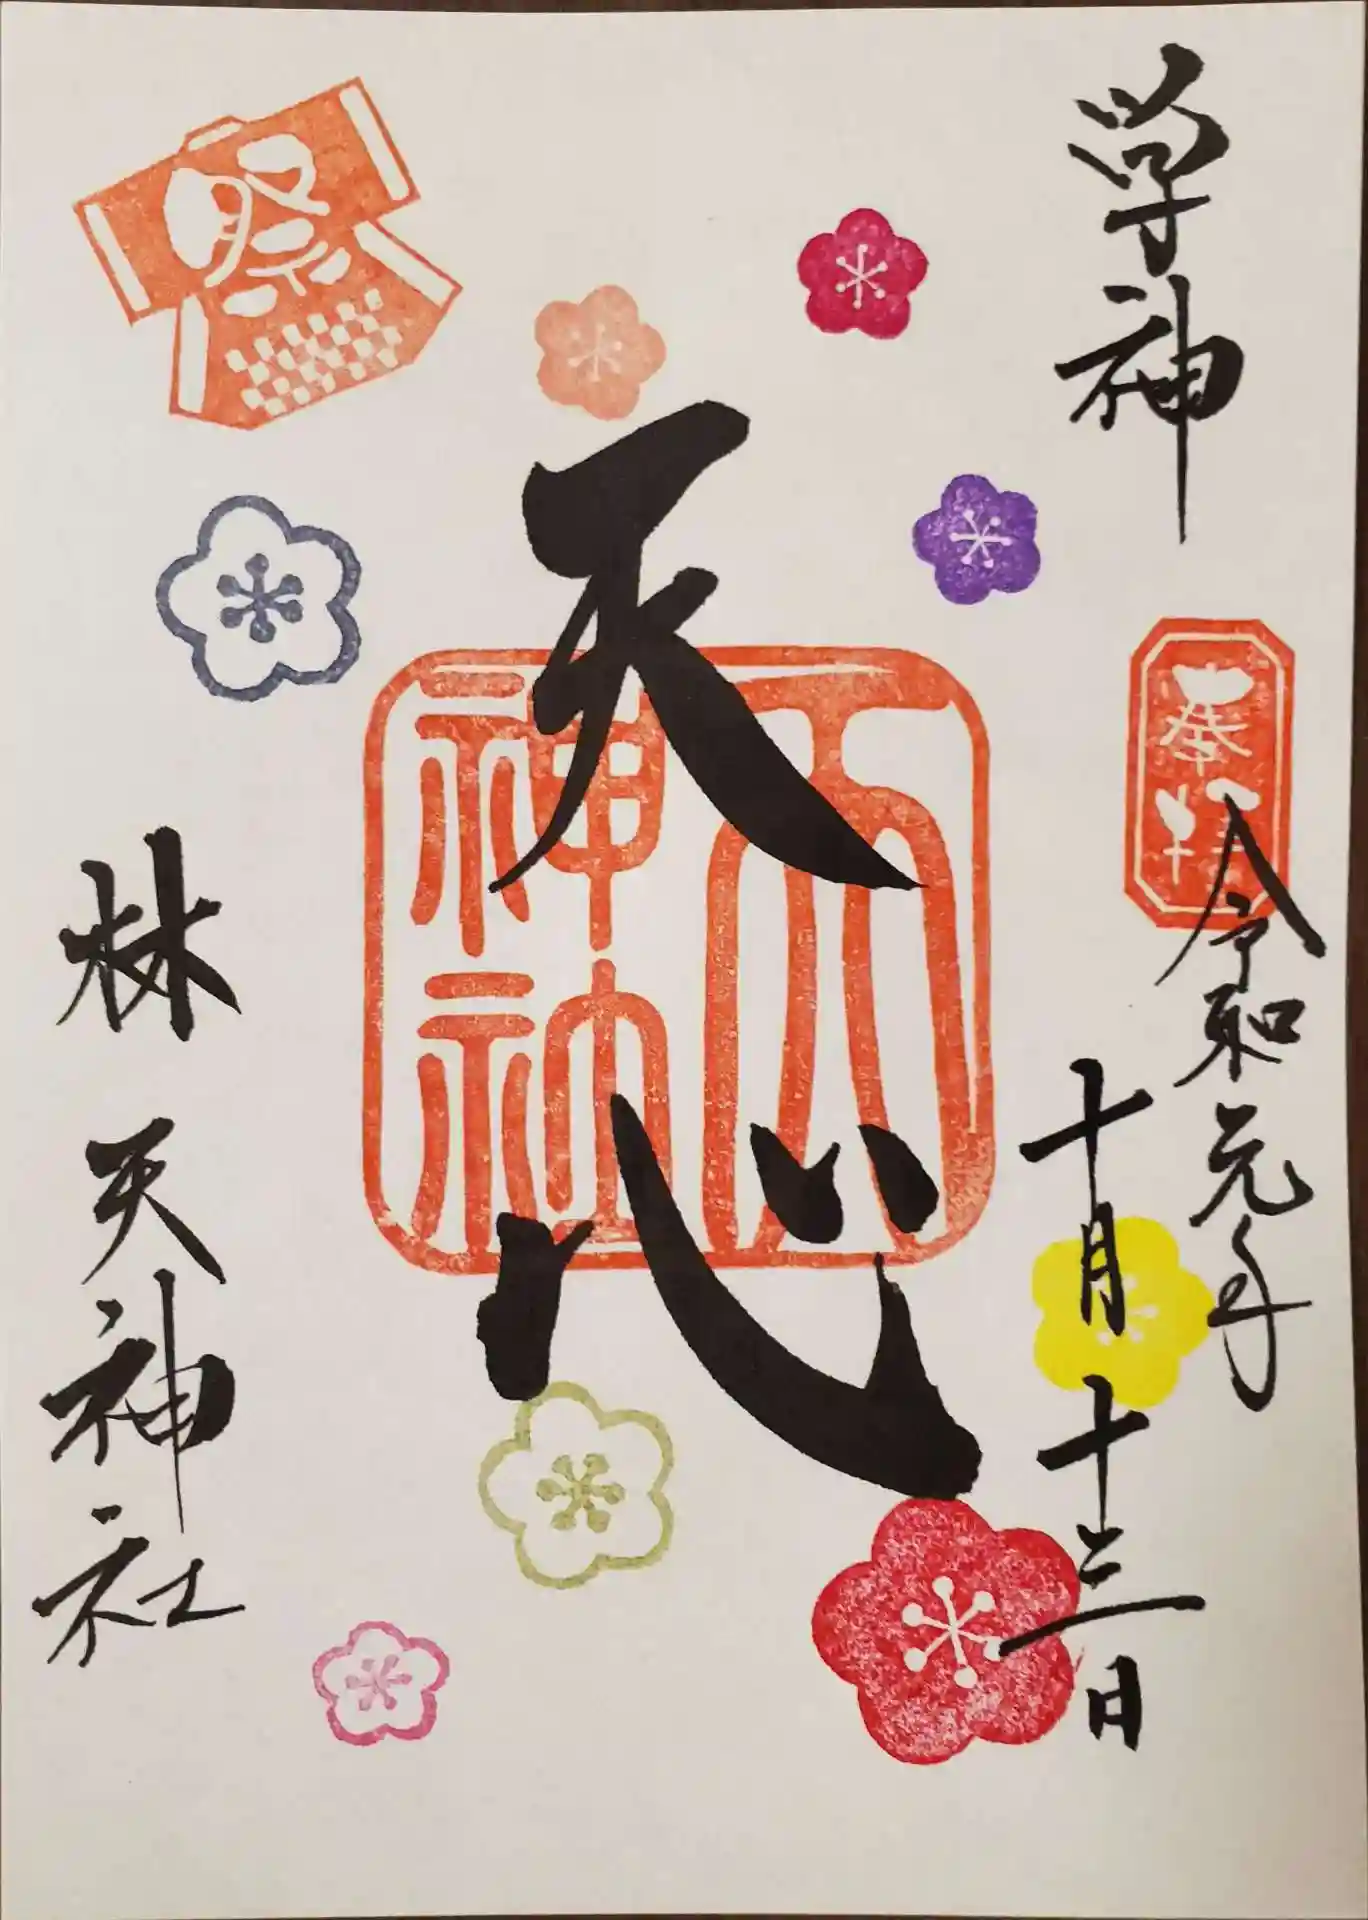 学神
奉拝
令和元年
十月十三日
天心
天
神社
祭
林天神社